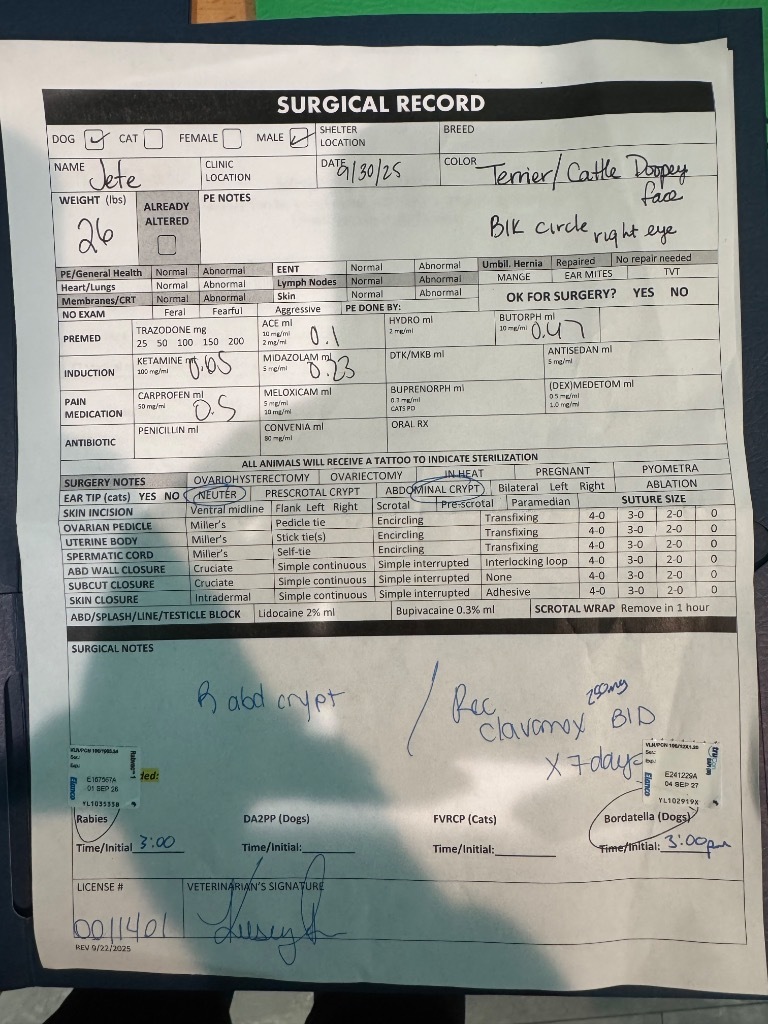 SURGICAL RECORD
DOG CAT FEMALE MALE SHELTER LOCATION BREED
NAME Jete CLINIC LOCATION DATE 9/30/25 COLOR Terrier/Cattle Doopey face
WEIGHT (lbs) 26 ALREADY ALTERED PE NOTES Blk circle right eye
PE/General Health Normal Abnormal EENT Normal Abnormal Umbil. Hernia Repaired No repair needed
Heart/Lungs Normal Abnormal Lymph Nodes Normal Abnormal MANGE EAR MITES TVT
Membranes/CRT Normal Abnormal Skin Normal Abnormal OK FOR SURGERY? YES NO
NO EXAM Feral Fearful Aggressive PE DONE BY:
PREMED TRAZODONE mg 25 50 100 150 200 ACE ml 10 mg/ml 2 mg/ml 0.1 HYDRO ml 2 mg/ml BUTORPH ml 10 mg/ml 0.47
INDUCTION KETAMINE 100 mg/ml MIDAZOLAM ml 5 mg/ml 0.23 DTK/MKB ml ANTISEDAN ml 5 mg/ml
PAIN MEDICATION CARPROFEN ml 50 mg/ml 0.5 MELOXICAM ml 5 mg/ml 10 mg/ml BUPRENORPH ml CATS PO (DEX)MEDETOM ml 0.5 mg/ml 1.0 mg/ml
ANTIBIOTIC PENICILLIN ml CONVENIA ml 80 mg/ml ORAL RX
ALL ANIMALS WILL RECEIVE A TATTOO TO INDICATE STERILIZATION
SURGERY NOTES OVARIOHYSTERECTOMY OVARIECTOMY IN HEAT PREGNANT PYOMETRA
EAR TIP (cats) YES NO NEUTER PRESCROTAL CRYPT ABDOMINAL CRYPT Bilateral Left Right ABLATION
SKIN INCISION Ventral midline Flank Left Right Scrotal Pre-scrotal Paramedian SUTURE SIZE
OVARIAN PEDICLE Miller's Pedicle tie Encircling Transfixing 4-0 3-0 2-0 0
UTERINE BODY Miller's Stick tie(s) Encircling Transfixing 4-0 3-0 2-0 0
SPERMATIC CORD Miller's Self-tie Encircling Transfixing 4-0 3-0 2-0 0
ABD WALL CLOSURE Cruciate Simple continuous Simple interrupted Interlocking loop 4-0 3-0 2-0 0
SUBCUT CLOSURE Cruciate Simple continuous Simple interrupted None 4-0 3-0 2-0 0
SKIN CLOSURE Intradermal Simple continuous Simple interrupted Adhesive 4-0 3-0 2-0 0
ABD/SPLASH/LINE/TESTICLE BLOCK Lidocaine 2% ml Bupivacaine 0.3% ml SCROTAL WRAP Remove in 1 hour
SURGICAL NOTES
R abd crypt / Rec 250mg
clavamox BID
x 7 days
Elanco E167567A
01 SEP 26
YL103535B
ded:
Elanco E241229A
04 SEP 27
YL102919X
Rabies DA2PP (Dogs) FVRCP (Cats) Bordatella (Dogs)
Time/Initial 3:00 Time/Initial: Time/Initial: Time/Initial: 3:00pm
LICENSE # VETERINARIAN'S SIGNATURE
0011401
REV 9/22/2025